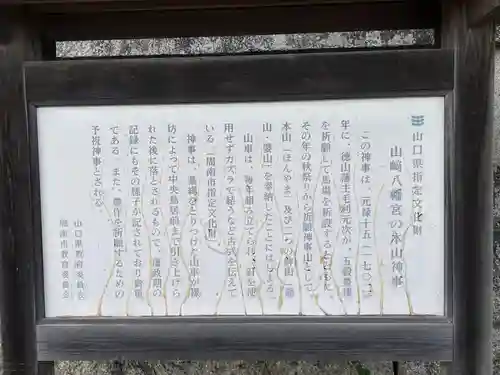 山口県指定文化財
山﨑八幡宮の本山神事
この神事は、元禄十五(一七〇二)
年に、徳山藩主毛利元次が、五穀豊穣
を祈願して馬場を新設するとともに、
その年の秋祭りから祈願の神事山として
本山(ほんやま)及び二つの飾山(
山・爺山)を奉納したことにはじまる。
山車は、毎年組み立てられ、釘を使
用せずカズラで結うなど古式を伝えて
いる(周南市指定文化財)
神事は、馬場をひきつけた山車が、
坊によって中央鳥居前まで引き上げら
れた後に落とされるもので、藩政期の
記録にもその様子が記されており貴重
である。また、豊作を祈願するための
予祝神事とされる。
山口県教育委員会
周南市教育委員会